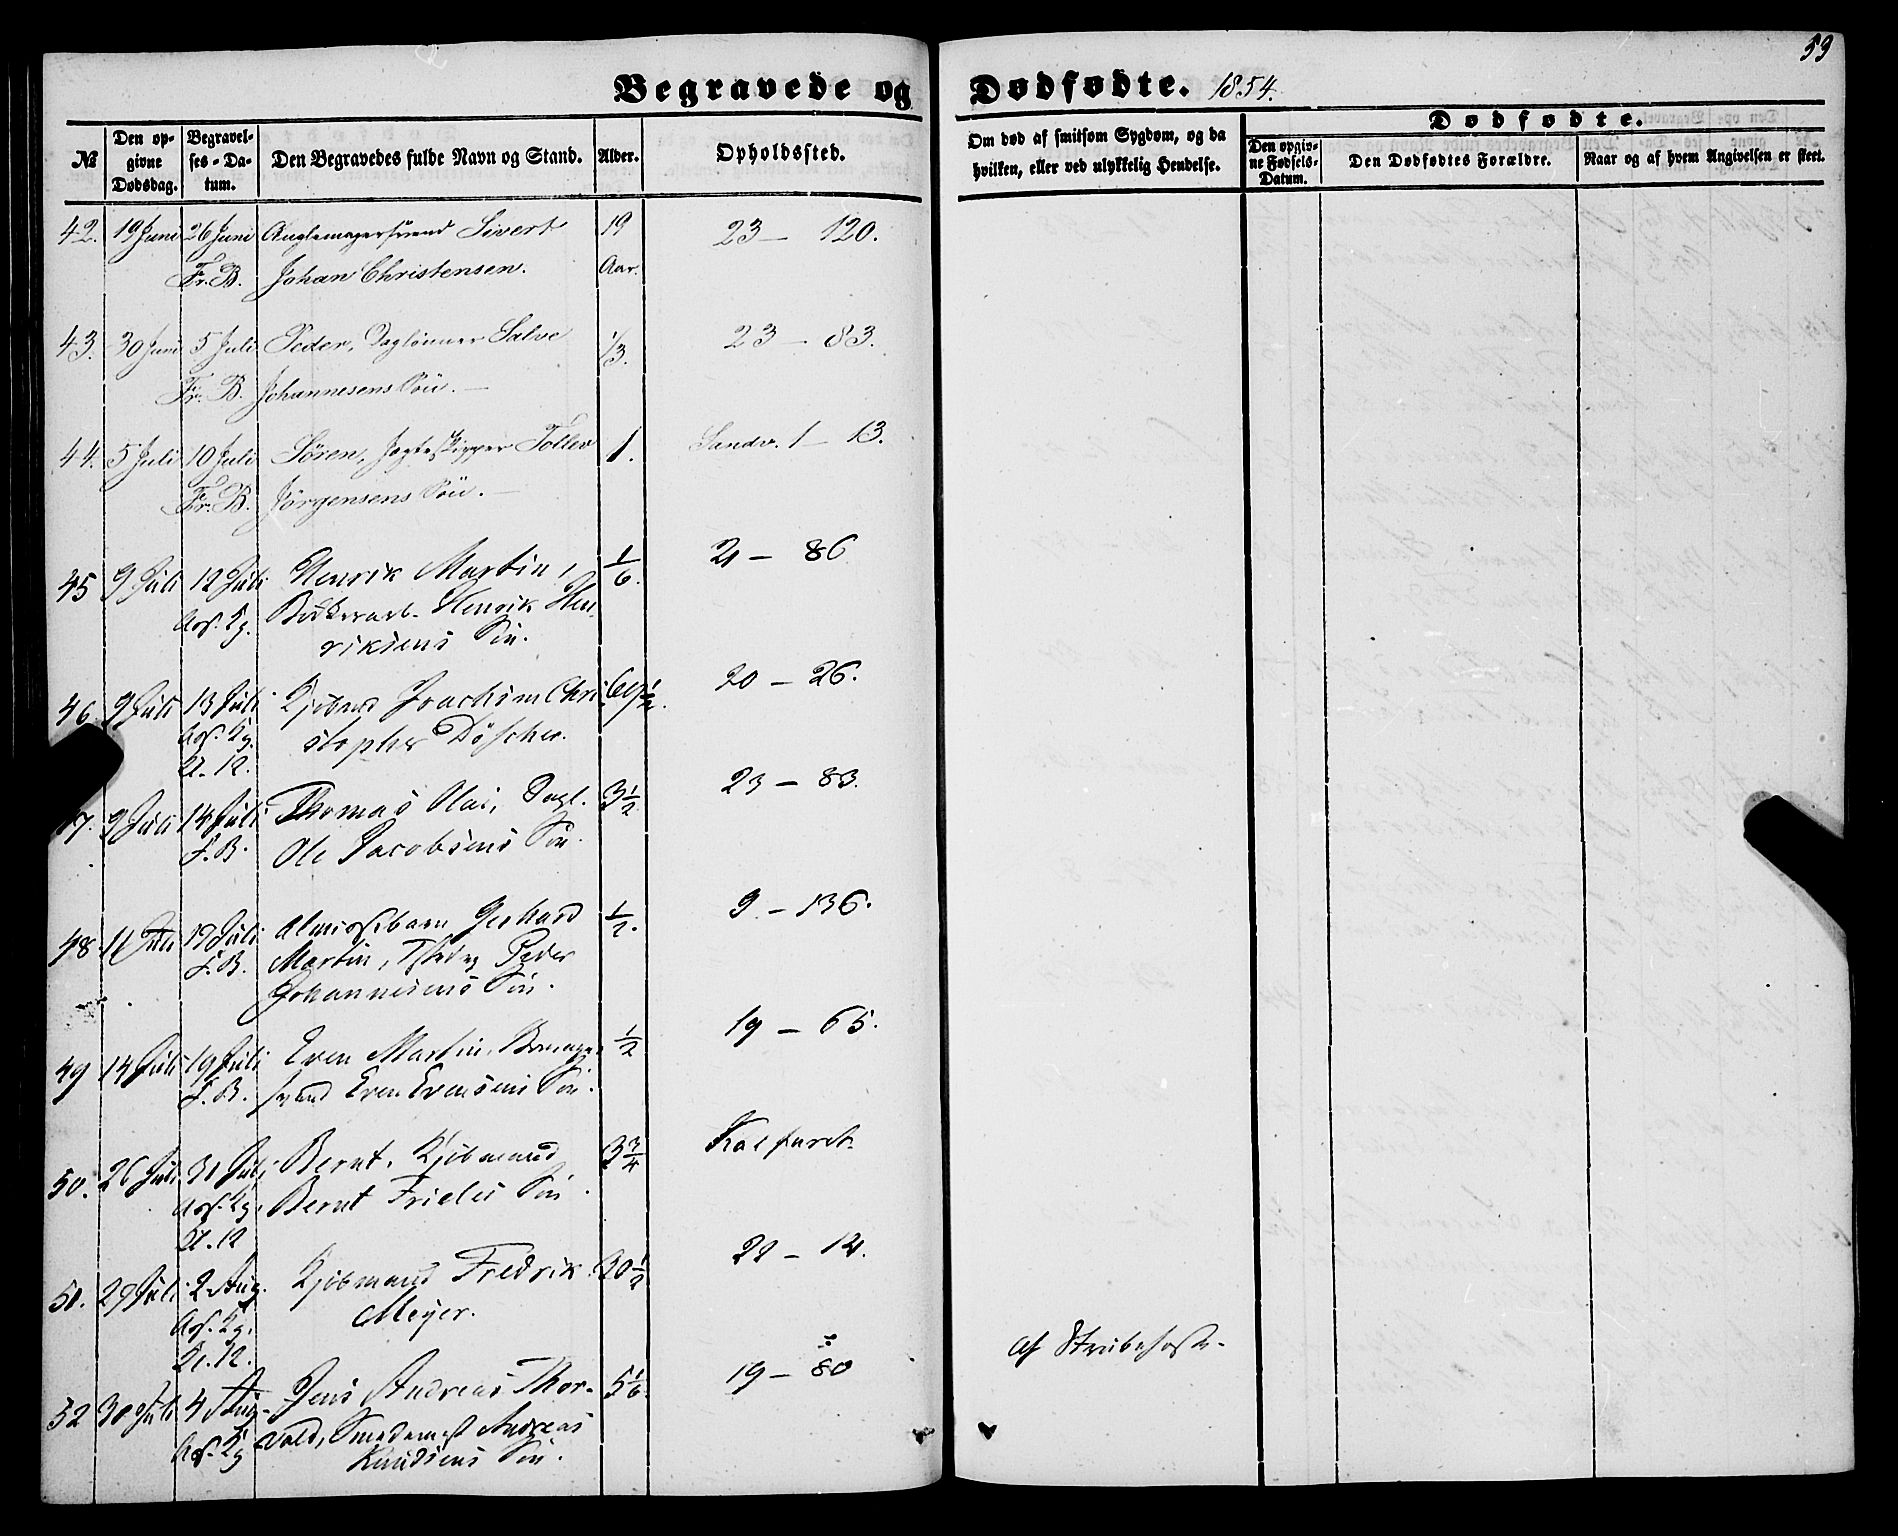 59
Begravede og Dødfødte. 1854.
No
Den op-
givne
Dødsdag.
Begravel-
ses-Da-
tum.
Den Begravedes fulde Navn og Stand.
Alder.
Opholdssted.
Om død af smitsom Sygdom, og da
hvilken, eller ved ulykkelig Hendelse.
Dødfødte.
Den opgiv-
ne Fødsels-
Datum.
Den Dødfødtes Forældre.
Naar og af hvem Angivelsen er skeet.
42. 19 Juni 26 Juni Sivert 19 23 — 120.
Fr. B. Johan Christensen. Aar.
43. 30 Juni 5 Juli Peder, Daglönner Salve 1/3. 23 — 83.
Fr. B. Johannesens Sön. —
44. 5 Juli 10 Juli Sören, Jagteskipper Tollev 1. Sandv. 1 — 13.
Fr. B. Jörgensens Sön. —
45 9 Juli 12 Juli Henrik Martin, 1/6. 21 — 86
Henrik Hen-
riksens Sön.
46 9 Juli 13 Juli Kjöbmd Joachim Chri 20 — 26.
stopher Döscher.
Kl. 12.
47. 9 Juli 14 Juli Thomas Olai, Dagl. 3 1/2 23 — 83.
F. B. Ole Jacobsens Sön.
48. 11 Juli 17 Juli Gerhard 1/2. 9 — 136.
F. B. Martin, Peder
Johannesens Sön.
49 14 Juli 19 Juli Even Martin, 1/2 19 — 65.
F. B. svend Even Evensens Sön.
50. 26 Juli 31 Juli Bernt, Kjöbmand 3 3/4 Kalfaret
Bernt Frieles Sön.
Kl. 12
51. 29 Juli 2 Aug. Kjöbmand Fredrik 30 1/2 22 — 12.
Meyer.
Kl. 12.
52 30 Juli 4 Aug. Jens Andreas Thor- 5 1/6. 19 — 80 af Strubehoste.
vald, Smedemest Andreas
Knudsens Sön.